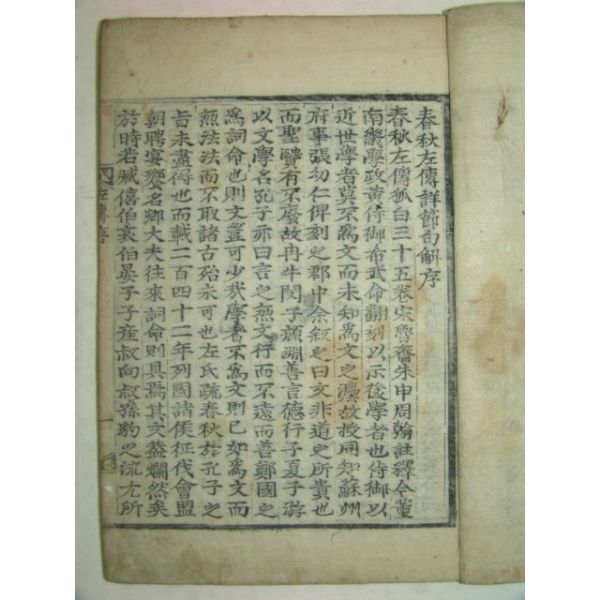 春秋左傳詳節句解序
春秋左傳狐白三十五卷宋魯齋朱申周翰註釋今董
南畿學政黃侍御希武命翻刻以示後學者也侍御以
近世學者莫不爲文而未知爲文之源故授同知蘇州
府事張幼仁俾刻之郡中余叙之曰文非道之所貴也
而聖賢有不廢故冉牛閔子顔淵善言德行子夏子游
以文學名孔子亦曰言之無文行而不遠而善鄭國之
爲詞命也則文豈可少哉學者不爲文則已如爲文而
無法法而不取諸古殆未可也左氏疏春秋於孔子之
旨未盡得也而載二百四十二年列國諸侯征伐會盟
朝聘宴饗名卿大夫往來詞命則具焉其文盖爛然矣
於時若臧僖伯哀伯晏子子産叔向叔孫豹之流尤所
左傳序
一